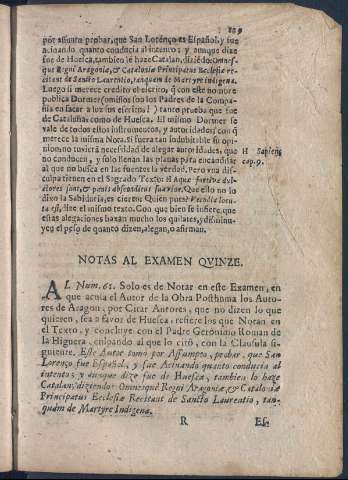 129
por assunto probar, que San Lorenço es Español, y fue
acinando quanto conducia al intento: y aunque dize
fue de Huesca, tambien le haze Catalan, diziẽdo: Omnes-
que Regni Aragoniæ, & Cataloniæ Principatus Ecclesiæ re-
citant de Sancto Laurentio, tanquam de Martyre indigena.
Luego si merece credito el escrito, q̃ con este nombre
publica Dormer (omissos son los Padres de la Compa-
ñia en sacar à luz sus escritos) tanto prueba fue de
de Cataluña como de Huesca. El mismo Dormer se
vale de todos estos instrumentos, y autoridades con q̃
merece la misma Nota. Si fuera tan indubitable su opi-
nion, no tuviera necessidad de alegar autoridades, que
no conducen, y solo llenan las planas para encandilar
al que no busca en las fuentes la verdad. Pero vna dis-
culpa tienen en el Sagrado Texto: H Aquæ furtivæ dul-
ciores sunt, & panis absconditus suavior. Que esto no lo
dixo la Sabiduria, es cierto: Quien pues? Vecordia locu-
ta est, dize el mismo texto. Con que bien se infiere, que
estas alegaciones baxan mucho los quilates, y diminu-
yen el peso de quanto dizen, alegan, o afirman.
H Sapient.
cap. 9.
NOTAS AL EXAMEN QVINZE.
AL Num. 61. Solo es de Notar en este Examen, en
que acusa el Autor de la Obra Posthuma los Auto-
res de Aragon, por Citar Autores, que no dizen lo que
quieren, sea à favor de Huesca, refiere los que Notan en
el Texto, y concluye con el Padre Geronimo Roman de
la Higuera, culpando al que lo citò, con la Clausula si-
guiente. Este Autor tomo por Assumpto, probar, que San
Lorenço fue Español, y fue Acinando quanto conducia al
intento; y aunque dize fue de Huesca, tambien lo haze
Catalan, diziendo: Omnesquè Regni Aragoniæ, & Cataloniæ
Principatus Ecclesiæ Recitant de Sancto Laurentio, tan-
quam de Martyre Indigena.
R Es-